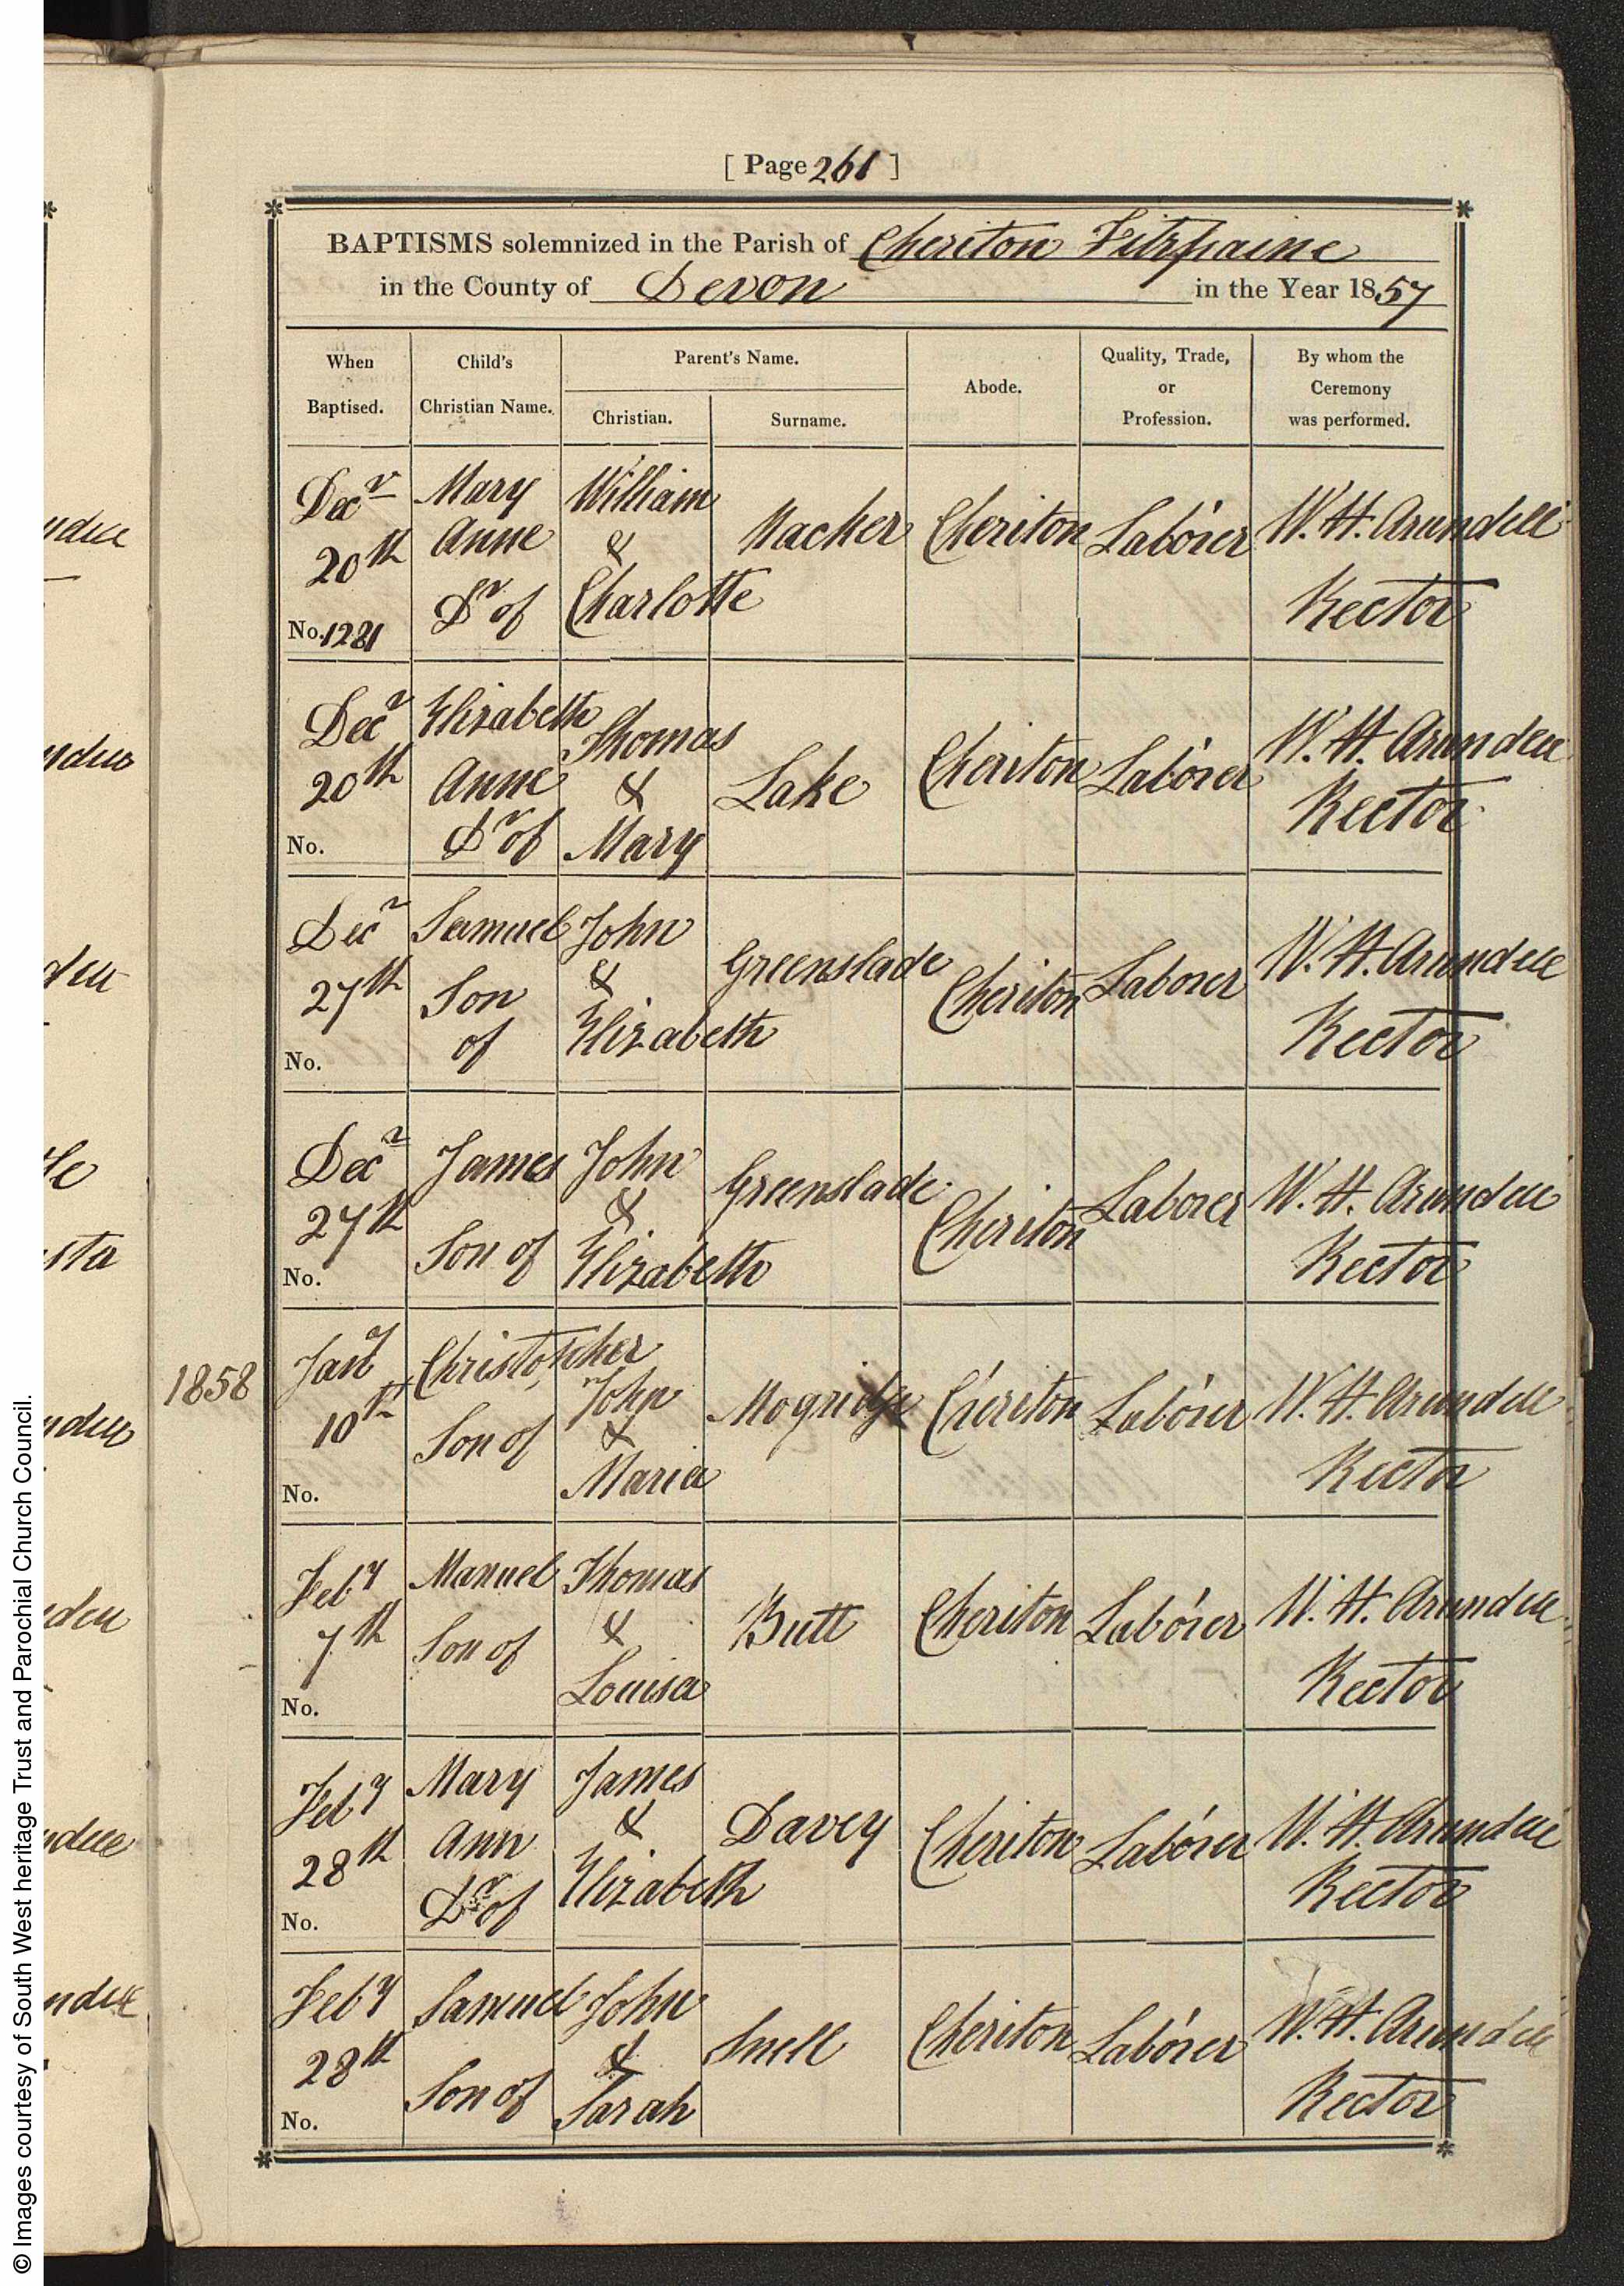 [ Page 261 ]
BAPTISMS solemnized in the Parish of Cheriton Fitzpaine
in the County of Devon in the Year 1857
When Baptised. Child's Christian Name. Parent's Name. Christian. Surname. Abode. Quality, Trade, or Profession. By whom the Ceremony was performed.
Decr 20th No. 1281 Mary Anne Dr of William & Charlotte Hacker Cheriton Labórer W. H. Arundell Rector
Decr 20th No. Elizabeth Anne Dr of Thomas & Mary Lake Cheriton Labórer W. H. Arundell Rector
Decr 27th No. Samuel Son of John & Elizabeth Greenslade Cheriton Laborer W. H. Arundell Rector
Decr 27th No. James Son of John & Elizabeth Greenslade Cheriton Laborer W. H. Arundell Rector
1858 Jany 10th No. Christopher Son of John & Maria Mogridge Cheriton Labórer W. H. Arundell Rector
Feby 7th No. Manuel Son of Thomas & Louisa Butt Cheriton Labórer W. H. Arundell Rector
Feby 28th No. Mary Ann Dr of James & Elizabeth Davey Cheriton Labórer W. H. Arundell Rector
Feby 28th No. Samuel Son of John & Sarah Snell Cheriton Labórer W. H. Arundell Rector
© Images courtesy of South West heritage Trust and Parochial Church Council.